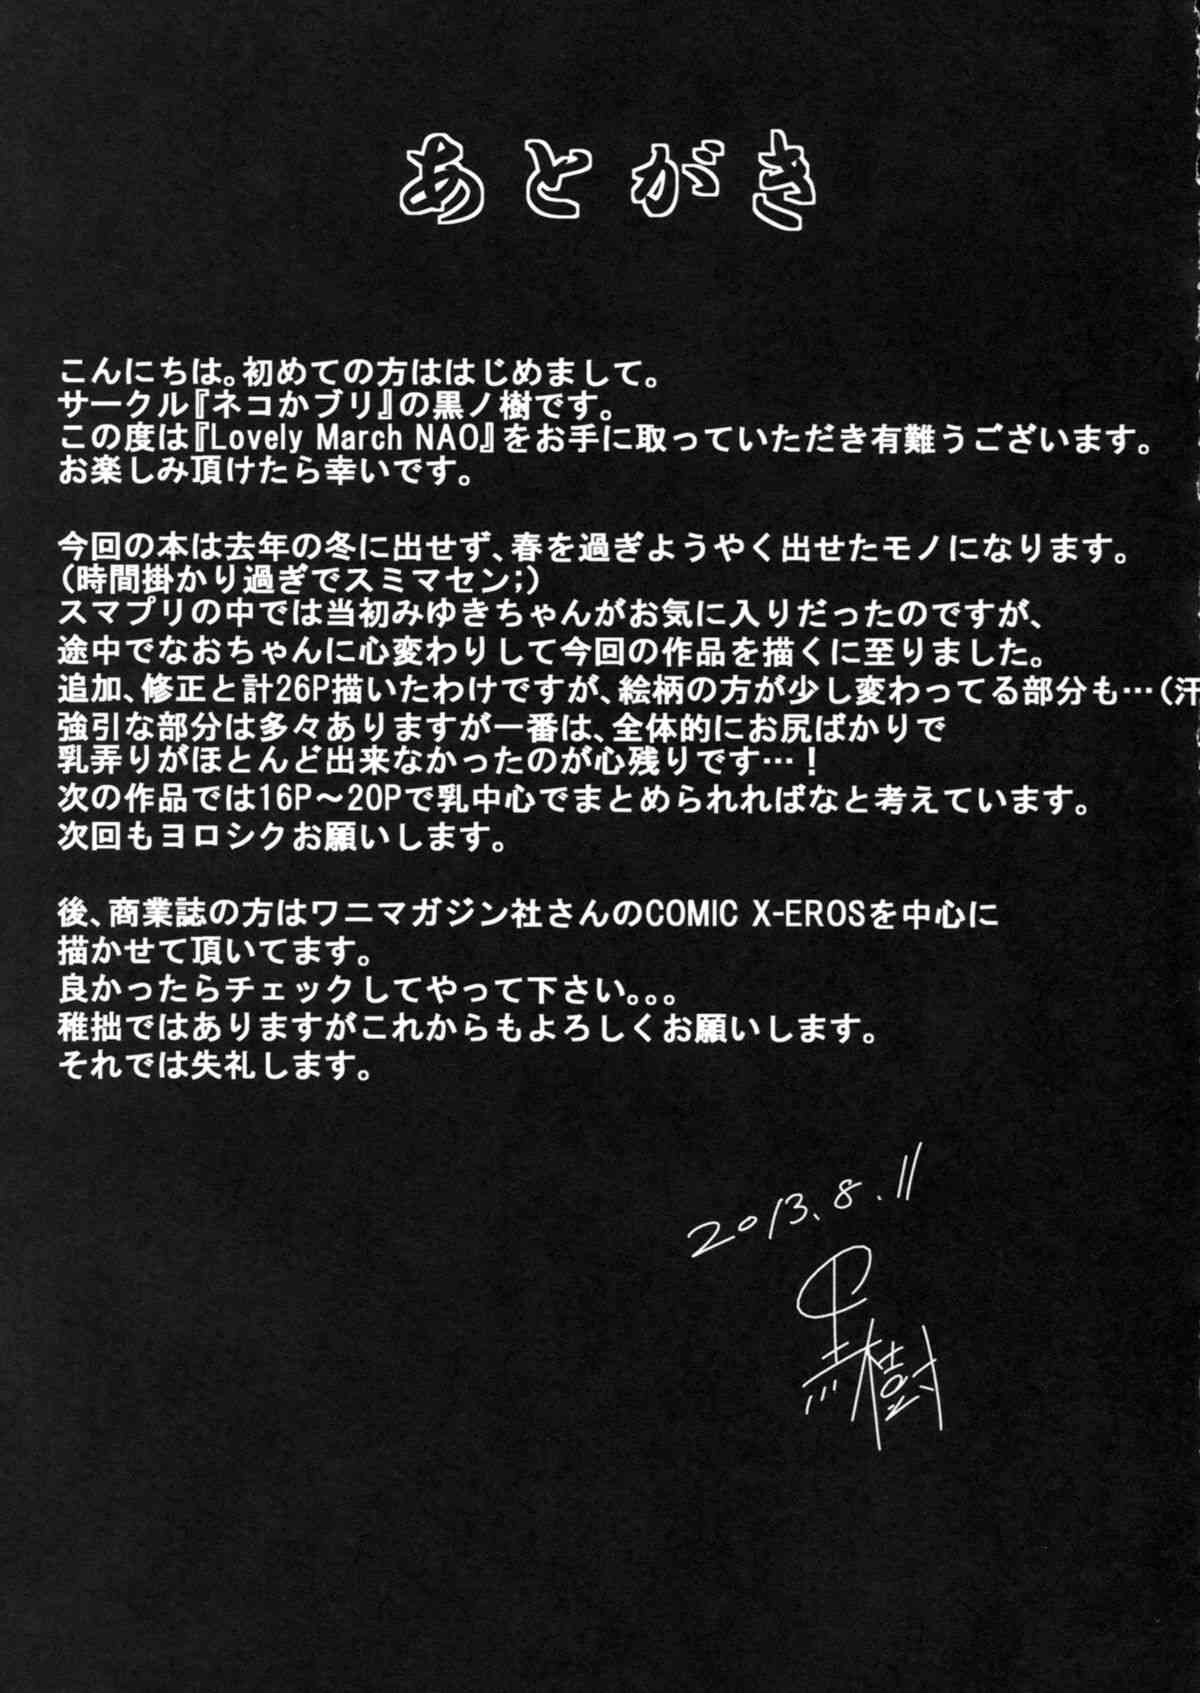 あとがき
こんにちは。初めての方ははじめまして。
サークル『ネコかブリ』の黒ノ樹です。
この度は『Lovely March NAO』をお手に取っていただき有難うございます。
お楽しみ頂けたら幸いです。
今回の本は去年の冬に出せず、春を過ぎようやく出せたモノになります。
(時間掛かり過ぎでスミマセン;)
スマプリの中では当初みゆきちゃんがお気に入りだったのですが、
途中でなおちゃんに心変わりして今回の作品を描くに至りました。
追加、修正と計26P描いたわけですが、絵柄の方が少し変わってる部分も…(汗
強引な部分は多々ありますが一番は、全体的にお尻ばかりで
乳弄りがほとんど出来なかったのが心残りです…！
次の作品では16P～20Pで乳中心でまとめられればなと考えています。
次回もヨロシクお願いします。
後、商業誌の方はワニマガジン社さんのCOMIC X-EROSを中心に
描かせて頂いてます。
良かったらチェックしてやって下さい。。。
稚拙ではありますがこれからもよろしくお願いします。
それでは失礼します。
2013.8.11
黒樹